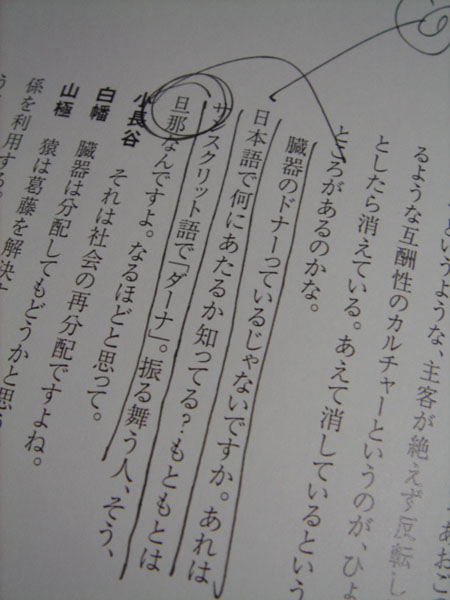 というような、主客が絶えず反転し
るような互酬性のカルチャーというのが、ひょ
としたら消えている。あえて消しているという
ところがあるのかな。
臓器のドナーっているじゃないですか。あれは
日本語で何にあたるか知ってる？もともとは
サンスクリット語で「ダーナ」。振る舞う人、そう、
旦那なんですよ。なるほどと思って。
小長谷　それは社会の再分配ですよね。
白幡　臓器は分配してもどうかと思う
山極　猿は葛藤を解決す
係を利用する。